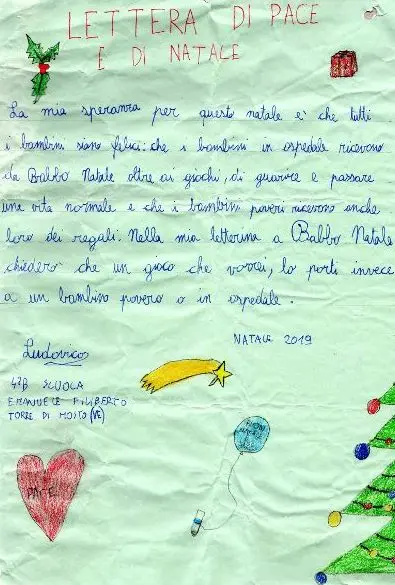 LETTERA DI PACE
E DI NATALE
La mia speranza per questo natale è che tutti
i bambini siano felici: che i bambini in ospedale ricevono
da Babbo Natale oltre ai giochi, di guarire e passare
una vita normale e che i bambini poveri ricevono anche
loro dei regali. Nella mia letterina a Babbo Natale
chiederò che un gioco che vorrei, lo porti invece
a un bambino povero o in ospedale.
NATALE 2019
Ludovico
4ªB SCUOLA
EMANUELE FILIBERTO
TORRE DI MOSTO (VE)
BUON
NATALE
PACE